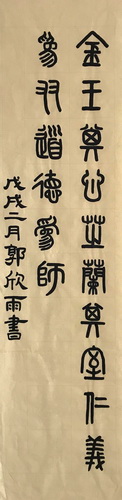 金玉其心芝蘭其室仁義
為友道德為師
戊戌二月郭欣雨書